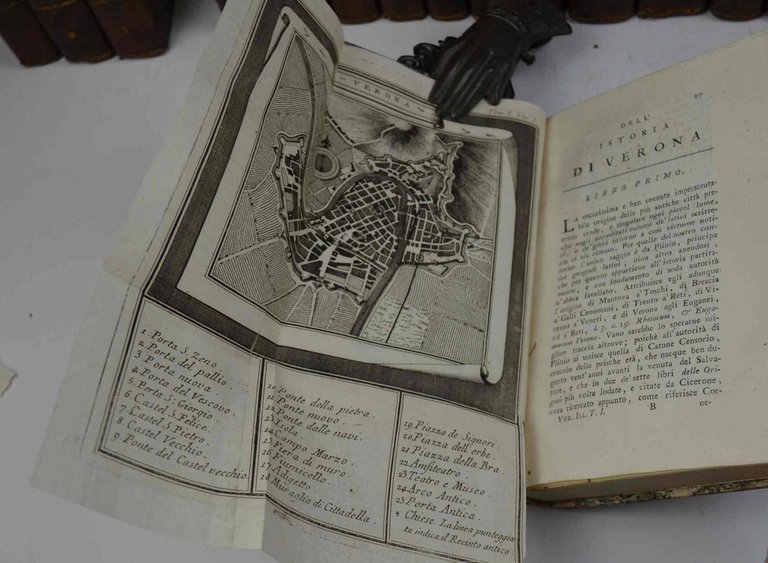 VERONA
1. Porta S. Zeno
2. Porta del pallio
3. Porta nuova
4. Porta del Vescovo
5. Porta S. Giorgio
6. Castel S. Felice.
7. Castel S. Pietro.
8. Castel Vecchio.
9. Ponte del Castel vecchio
10. Ponte della pietra.
11. Ponte nuovo.
12. Ponte delle navi.
13. Isola.
14. Campo Marzo.
15. Fiera di muro.
16. Fiumicello.
17. Adigetto
18. Muraglia di Cittadella
19. Piazza de Signori.
20. Piazza dell'erbe.
21. Piazza della Bra.
22. Amfiteatro.
23. Teatro e Museo.
24. Arco Antico.
25. Porta Antica.
* Chiese. La linea punteggia
ta indica il Recinto antico
27
DELL'
ISTORIA
DI VERONA
LIBRO PRIMO.
LA oscurissima e ben sovente imperscruta-
bile origine delle più antiche città pre-
ziono rende, e singolare ogni piccol lume,
che negli accreditati volumi de' latini scritto-
ri, e de' greci intorno a così virtuose noti-
zie ci sia rimaso. Per quelle del nostro con-
torno l'unico raggio è da Plinio, principe
de' geografi latini; niun altro avendosi,
che per quanto appartiene all'istoria partita-
mente, e con fondamento di soda autorità
n'abbia favellato. Attribuisce egli adunque
l'origine di Mantova a' Toschi, di Brescia
a' Galli Cenomani, di Trento a' Reti, di Vi-
cenza a' Veneti, e di Verona agli Euganei,
ed a' Reti, l. 3. c. 19. Rhetorum, & Euga-
neorum Verona. Vano sarebbe lo sperarne mi-
glior traccia altrove; poichè all'autorità di
Plinio si unisce quella di Catone Censorio,
oracolo delle prische età, che nacque ben du-
gento vent'anni avanti la venuta del Salva-
tore, e che in due de' sette libri delle Ori-
gini più volte lodate, e citate da Cicerone,
avea ricercato appunto, come riferisce Cor-
VER. ILL. T. I. B ne-